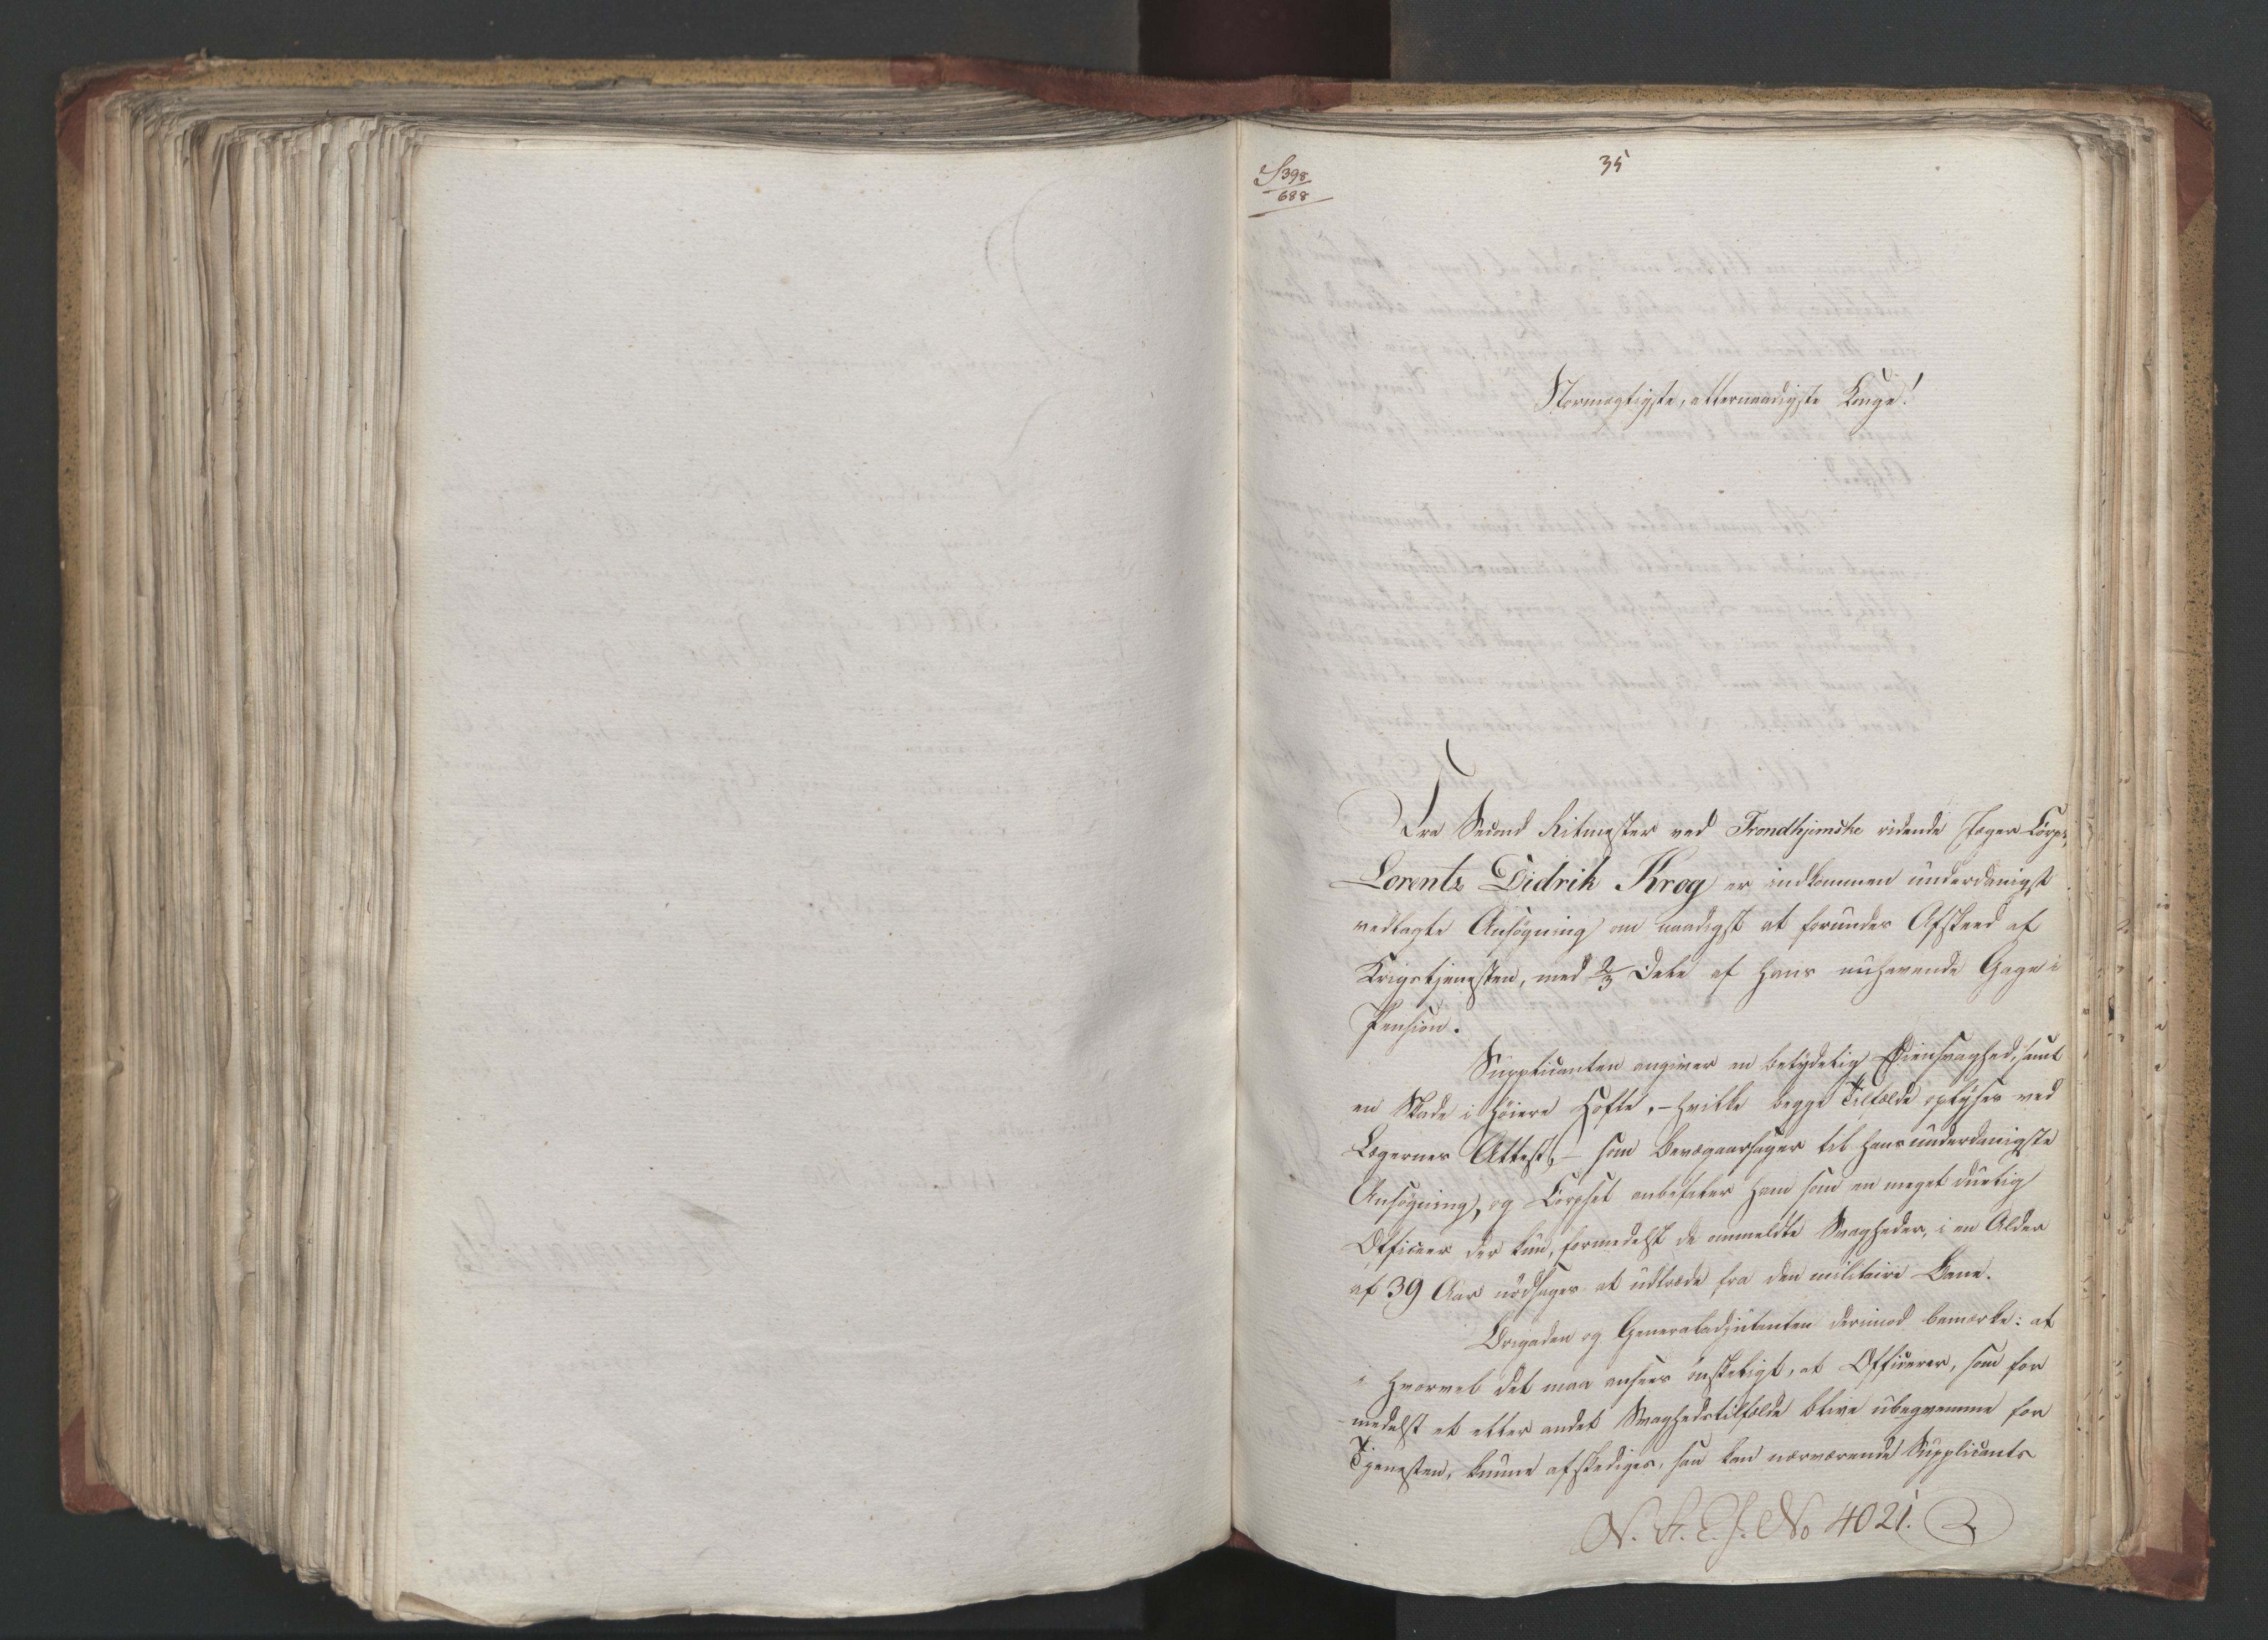 35
S 398
688
Stormægtigste, allernaadigste Konge!
Fra Second Ritmester ved Trondhjemske ridende Jæger-Corps,
Lorentz Didrik Krog er indkommen underdanigst
vedlagte Ansøgning om naadigst at forundes Afskeed af
Krigstjenesten, med 2/3 Dele af hans nuhavende Gage i
Pension.
Supplicanten angiver en betydelig Øiensvaghed, samt
en Skade i høiere Hofte, – hvilke begge Tilfælde oplyses ved
Lægernes Attest, – som Bevægaarsager til hans underdanigste
Ansøgning, og Corpset anbefaler ham som en meget duelig
Officeer der kun, formedelst de anmeldte Svagheder, i en Alder
af 39 Aar nödsages at udtræde fra den militaire Bane.
Brigaden og Generaladjutanten derimod bemærke: at
i hvorvel det maa ansees ønskeligt, at Officerer, som for
medelst et eller andet Svaghedstilfælde blive ubeqvemme for
Tjenesten, kunne afskediges, saa kan nærværende Supplicants
No 4021. 2